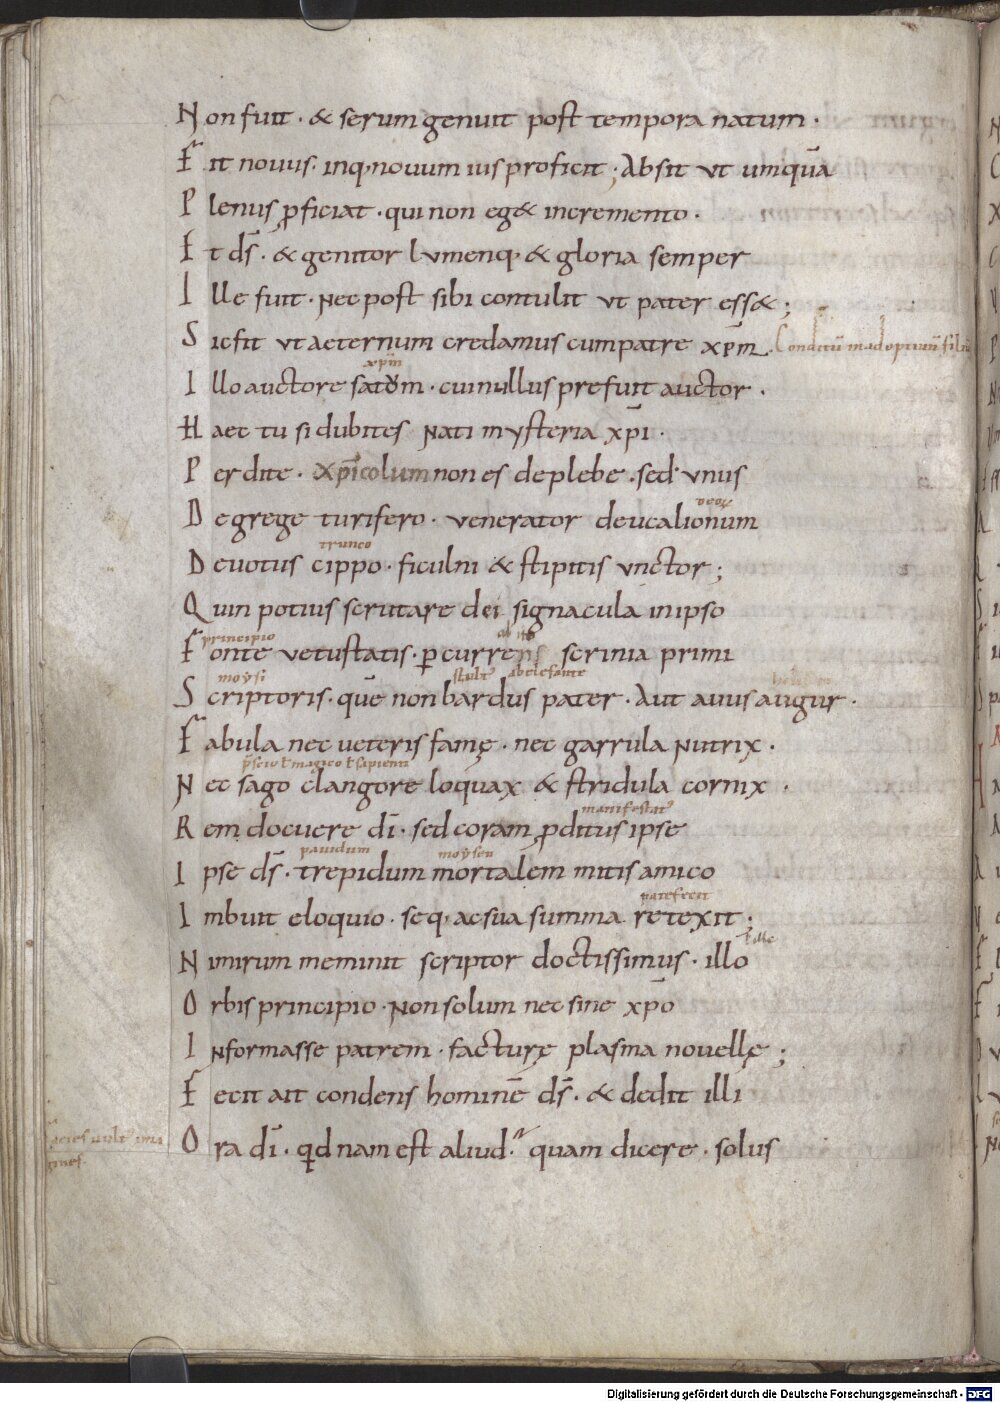 Non fuit · & serum genuit post tempora natum ·
Fit novus · inq· novum ius proficit ; Absit ut umquā
Plenus ꝓficiat · qui non eg& incremento ·
Et dſ̄ · & genitor lumenq· & gloria semper
Ille fuit · Nec post sibi contulit ut pater ess& ;
Sic fit ut aeternum credamus cum patre xp̄m ·
xp̄m
Illo auctore satum · cui nullus prefuit auctor ·
Haec tu si dubites Nati mysteria xp̄i ·
Perdite · Xp̄icolum non es de plebe · sed unus
De grege turifero · venerator deucalionum
trunco
Devotus cippo · ficulni & stipitis unctor ;
Quin potius scrutare dei signacula in ipso
principio
Fonte vetustatis · ꝑcurrens scrinia primi
moysi
Scriptoris · quē non bardus pater · Aut avus augur ·
Fabula nec veteris famę · nec garrula Nutrix ·
Nec sago clangore loquax & stridula cornix ·
manifestat᾽
Rem docuere dī · sed coram ꝓditus ipse
pauidum moysen
Ipse dſ̄ · trepidum mortalem mitis amico
patefecit
Imbuit eloquio · seq· ac sua summa retexit ;
Nimirum meminit scriptor doctissimus · illo
Orbis principio · Non solum nec sine xp̄o
INformasse patrem · facturę plasma novellę ;
Fecit ait condens hominē dſ̄ · & dedit illi
Ora dī · qd nam est aliud · quam dicere · solus
Digitalisierung gefördert durch die Deutsche Forschungsgemeinschaft · DFG